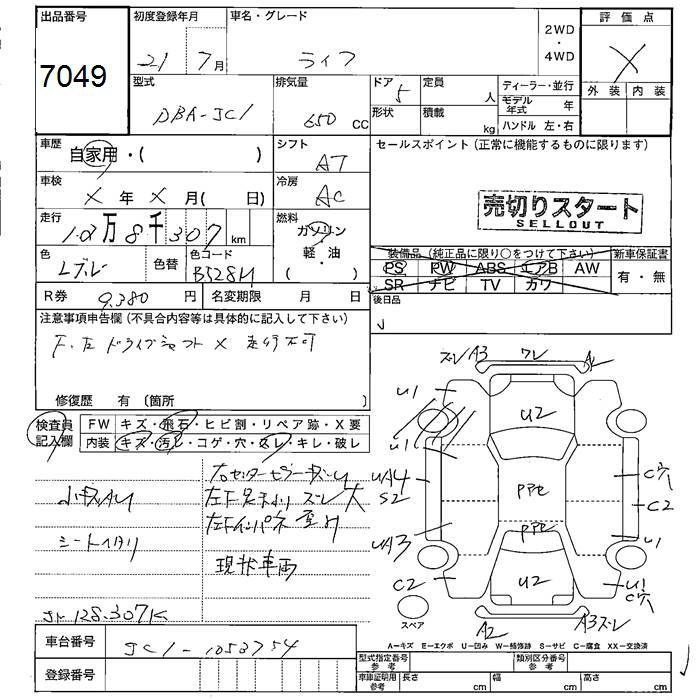 出品番号 初度登録年月 車名・グレード 2WD・4WD 評価点
7049 21 7月 ライフ X
型式 排気量 ドア 定員 ディーラー・並行 外装 内装
DBA-JC1 650 CC 5 人 モデル年式 年
形状 積載 kg ハンドル 左・右
車歴 自家用・( ) シフト AT セールスポイント (正常に機能するものに限ります)
車検 X 年 X 月( 日) 冷房 AC
売切りスタート
SELLOUT
走行 12万8千307 km 燃料 ガソリン 軽・油 ( ・ )
装備品 (純正品に限り○をつけて下さい) 新車保証書
PS PW ABS エアB AW 有・無
SR ナビ TV カワ
色 Lブレ 色替 色コード B528M
後日品
R券 9,380 円 名変期限 月 日
注意事項申告欄 (不具合内容等は具体的に記入して下さい)
F.左ドライブシャフト X 走行不可
修復歴 有 〔箇所 〕
検査員記入欄 FW キズ・飛石・ヒビ割・リペア跡・X要
内装 キズ・汚レ・コゲ・穴・スレ・キレ・破レ
右センターピラー
小キズ
シートイタリ
現状車両
JM 128.307K
ズレ A3 ワレ A
U1 U2
U1
UA4 S2 PPセ C穴
C2
UA3 PPセ U1
C2 U2 U1 C穴
スペア A2 A3ズレ
A=キズ E=エクボ U=凹み W=補修跡 S=サビ C=腐食 XX=交換済
車台番号 JC1-1053754
登録番号
型式指定番号 参考 類別区分番号 参考
車庫証明用 参考 長さ cm 幅 cm 高さ cm